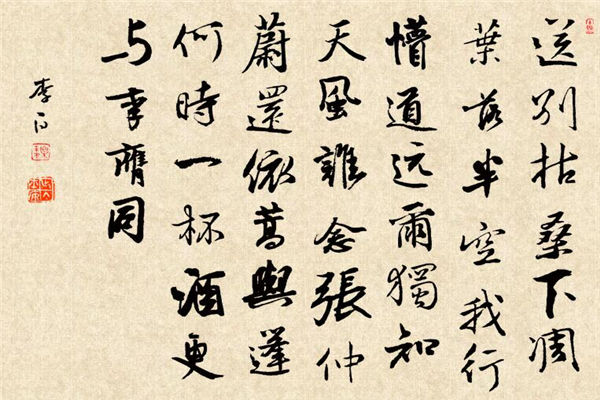 送别枯桑下凋
葉落半空我行
懵道远爾獨知
天風誰念張仲
蔚還依蒿與蓬
何時一杯酒更
与李膺同
李白